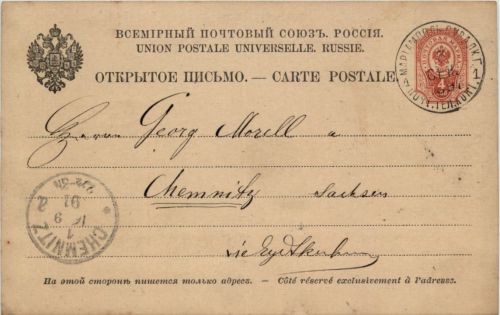 ВСЕМІРНЫЙ ПОЧТОВЫЙ СОЮЗЪ. РОССІЯ.
UNION POSTALE UNIVERSELLE. RUSSIE.
ОТКРЫТОЕ ПИСЬМО. — CARTE POSTALE.
Herrn Georg Morell
Chemnitz Sachsen
CHEMNITZ
91
На этой сторонѣ пишется только адресъ. — Côté réservé exclusivement à l'adresse.